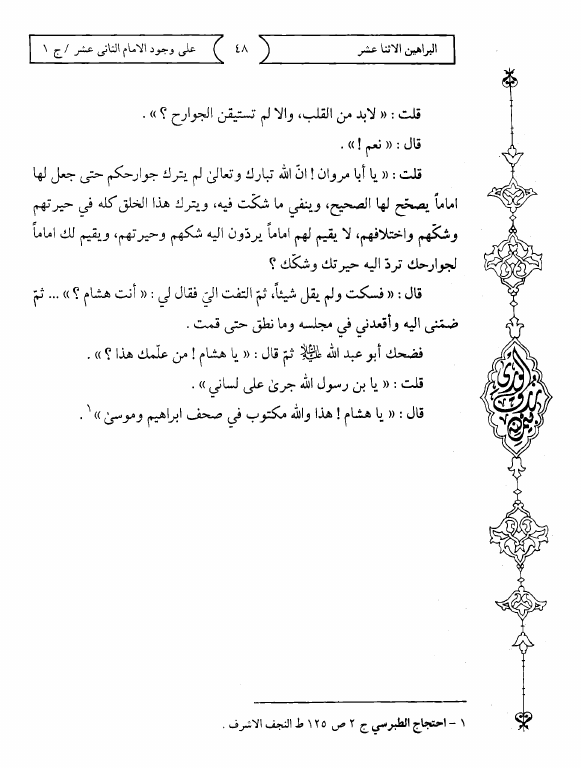 البراهين الاثنا عشر
٤٨
على وجود الامام الثاني عشر / ج ١
قلت : « لابد من القلب، والا لم تستيقن الجوارح ؟ » .
قال : « نعم ! » .
قلت : « يا أبا مروان ! انّ الله تبارك وتعالىٰ لم يترك جوارحكم حتى جعل لها
اماماً يصحّح لها الصحيح، وينفي ما شكّت فيه، ويترك هذا الخلق كله في حيرتهم
وشكّهم واختلافهم، لا يقيم لهم اماماً يردّون اليه شكهم وحيرتهم، ويقيم لك اماماً
لجوارحك تردّ اليه حيرتك وشكّك ؟
قال : « فسكت ولم يقل شيئاً، ثمّ التفت اليّ فقال لي : « أنت هشام ؟ » ... ثمّ
ضمّنى اليه وأقعدني في مجلسه وما نطق حتى قمت .
فضحك أبو عبد الله عليه السلام ثمّ قال : « يا هشام ! من علّمك هذا ؟ » .
قلت : « يا بن رسول الله جرىٰ على لساني » .
قال : « يا هشام ! هذا والله مكتوب في صحف ابراهيم وموسىٰ » ١ .
١ - احتجاج الطبرسي ج ٢ ص ١٢٥ ط النجف الاشرف .